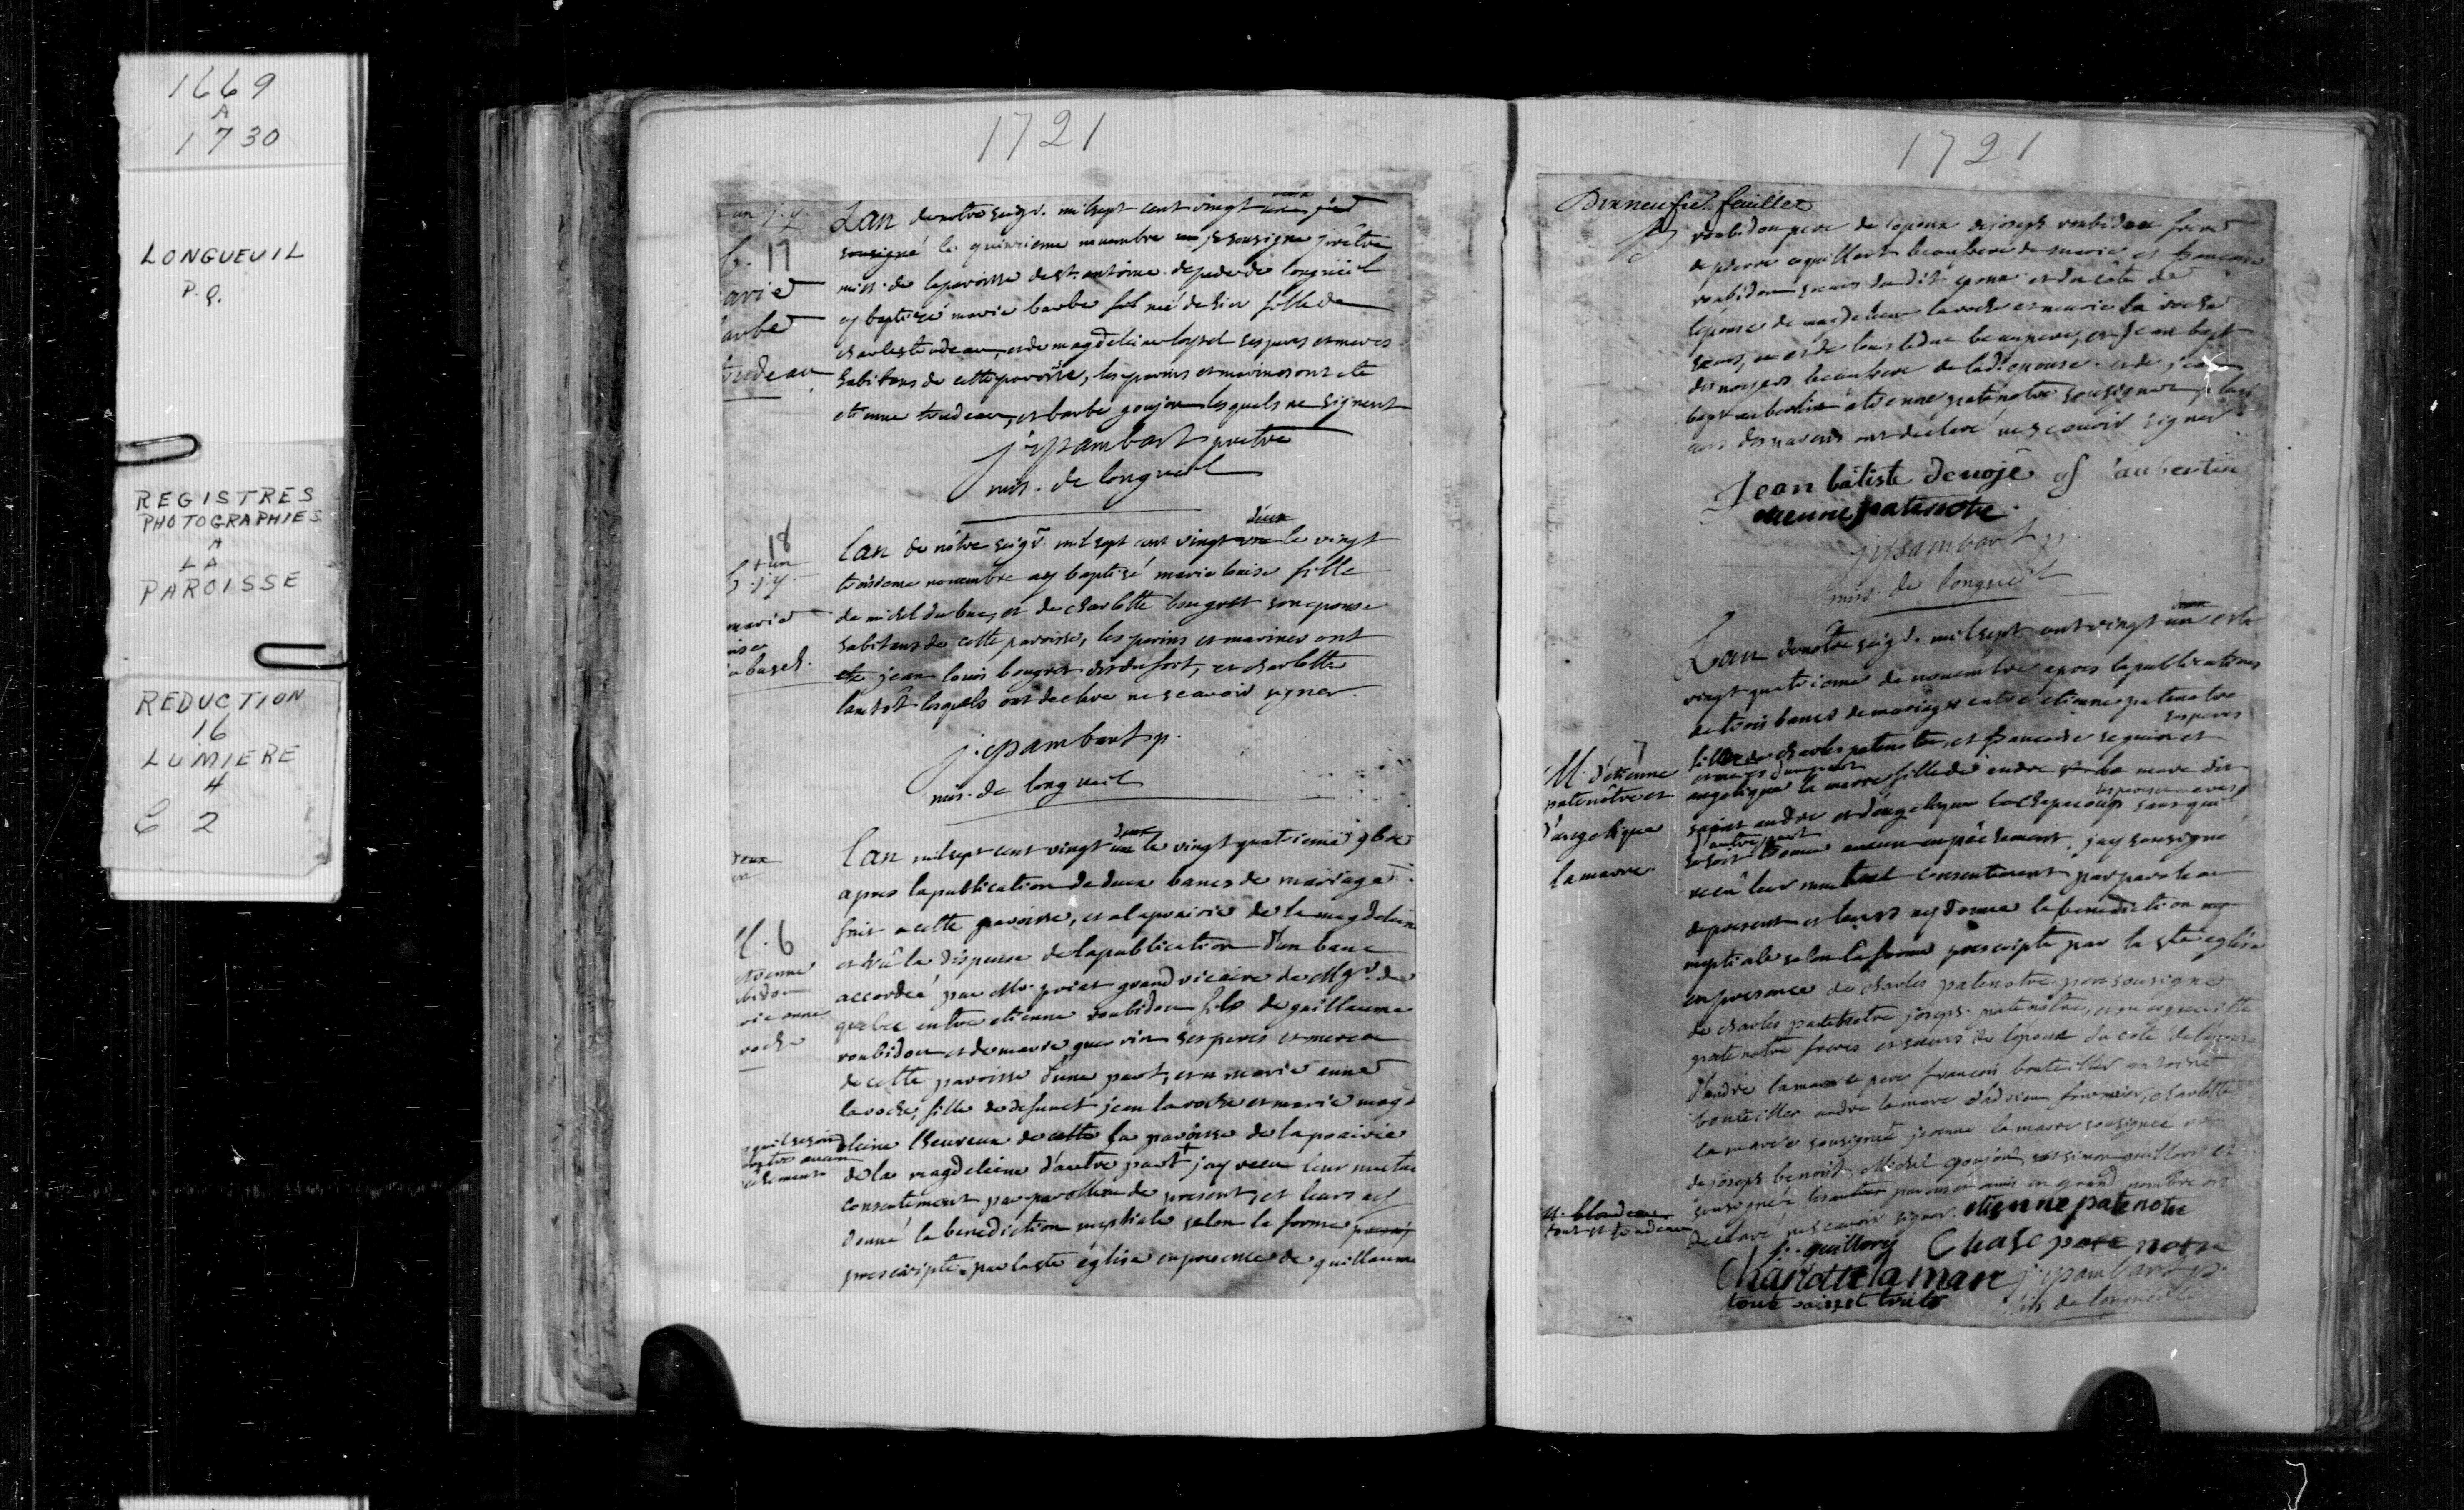 1669
A
1730
LONGUEUIL
P.Q.
REGISTRES
PHOTOGRAPHIES
A
LA
PAROISSE
REDUCTION
16
LUMIERE
4
C 2
1721
b. 17
arie
arbe
trudeau
Lan de notre seigr. mil sept cent vingt deux un je
sousigné le quinzieme nouembre je sousigné prêtre
miss. de la paroisse de st. antoine de pade de longüeil
ay baptizé marie barbe née de hier fille de
charles trudeau, et de magdeleine loysel ses peres et meres
habitans de cette paroisse, les parins et marines ont ete
etienne trudeau, et barbe goujon lesquels ne signent
j. ysambart pretre
mis. de longueil
18
marie
Lan de nôtre seigr. mil sept cent vingt un deux le vingt
troisieme nouembre ay baptisé marie louise fille
de michel dubuc, et de charlotte bougret son epouse
habitans de cette paroisse, les parins et marines ont
ete jean louis bougret dit dufort, et charlotte
lanctôt lesquels ont declare ne scavoir signer.
j. ysambart p.
mis. de longueil
M. 6
etienne
bidou
rie anne
roche
Lan mil sept cent vingt un deux le vingt quatrieme 9bre
apres la publication de deux bancs de mariage
fait a cette paroisse, et a la prairie de la magdeleine
et vû la dispense de la publication d'un banc
accordée par Mr. priat grand vicaire de Mgr. de
quebec entre etienne roubidou fils de guillaume
roubidou et de marie guerrin ses peres et meres
de cette paroisse d'une part, et marie anne
laroche, fille de defunct jean laroche et marie mag
deleine lheureux de cette la paroisse de la prairie
de la magdeleine d'autre part jay receu leur mutuel
consentement par parolles de present, et leurs ay
donné la benediction nuptiale selon la forme
prescripte par la ste eglise en presence de guillaume
1721
Dixneufie. feuillet
roubidou pere de lepoux de joseph roubidou frere
de pierre coquillart beaufrere de marie et francoise
roubidou soeurs dudit epoux et du côté de
lepouse de magdeleine laroche et marie la roche
soeurs, et de louis leduc beaupere, et jean bapt
desnoyers beaufrere de lad. epouse et de jean
bapt aubertin etienne patenotre sousignez
des parens ont declaré ne scavoir signer
Jean bâtiste denoje aubertin
etienne patenotre
j ysambart p.
mis. de longueil
M. d'etienne
patenôtre et
d'angelique
lamarre.
Lan de notre seigr. mil sept cent vingt un deux et le
vingt quatrieme de nouembre apres la publication
de trois bancs de mariage entre etienne patenotre
fils de charles patenotre, et francoise seguin ses peres
et meres d'une part
angelique la marre fille de andre la mare dit
saint andre et d'angelique ses peres et meres sans quil
d'autre part
se soit trouve aucun empêchement, jay sousigné
receu leur mutuel consentement par parolles
de present et leurs ay donne la benediction
nuptiale selon la forme prescripte par la ste eglise
en presence de charles patenotre pere sousigné
de charles patenotre joseph patenôtre, et marguerite
patenotre freres et soeurs de lepoux du côté de lepouse
d'andre lamarre pere francois bouteiller antoine
bouteiller andre lamare d'adrien fournier, charlotte
la marre sousignee jeanne la marre sousignee et
de joseph benoist, Michel goujon, simon guillory
declaré ne scavoir signer. etienne patenotre
s. guillory Charle patenotre
Charlotte la mare j. ysambart p.
mis de longueil